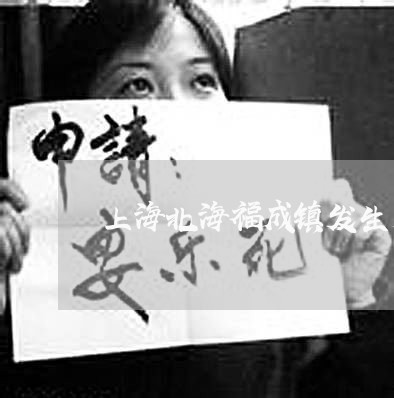 申請：
上海北海福成镇发生
安乐死